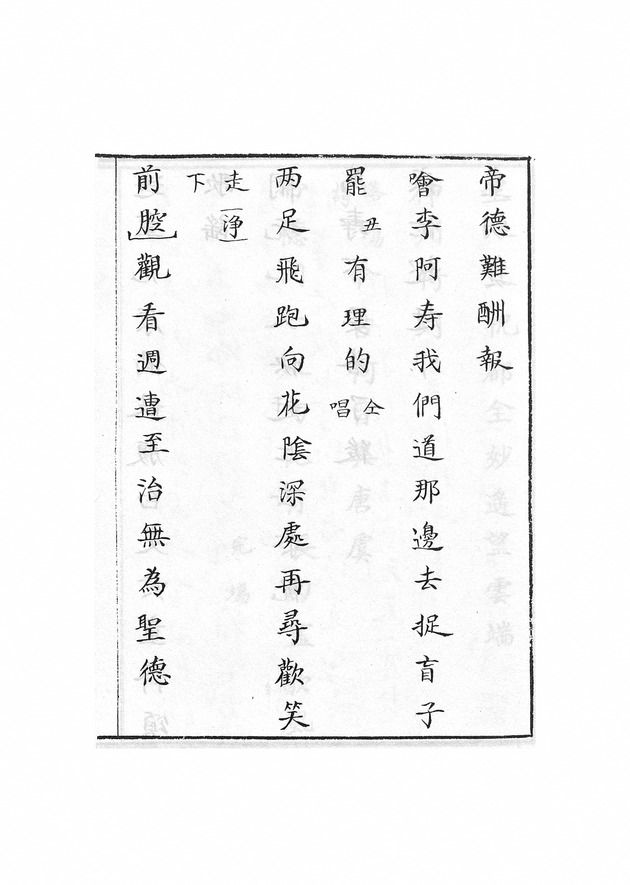 帝德難酬報
噲李阿寿我們道那邊去捉盲子
罷丑有理的仝唱
两足飛跑向花陰深處再尋歡笑
走浄下
前腔觀看週遭至治無為聖德